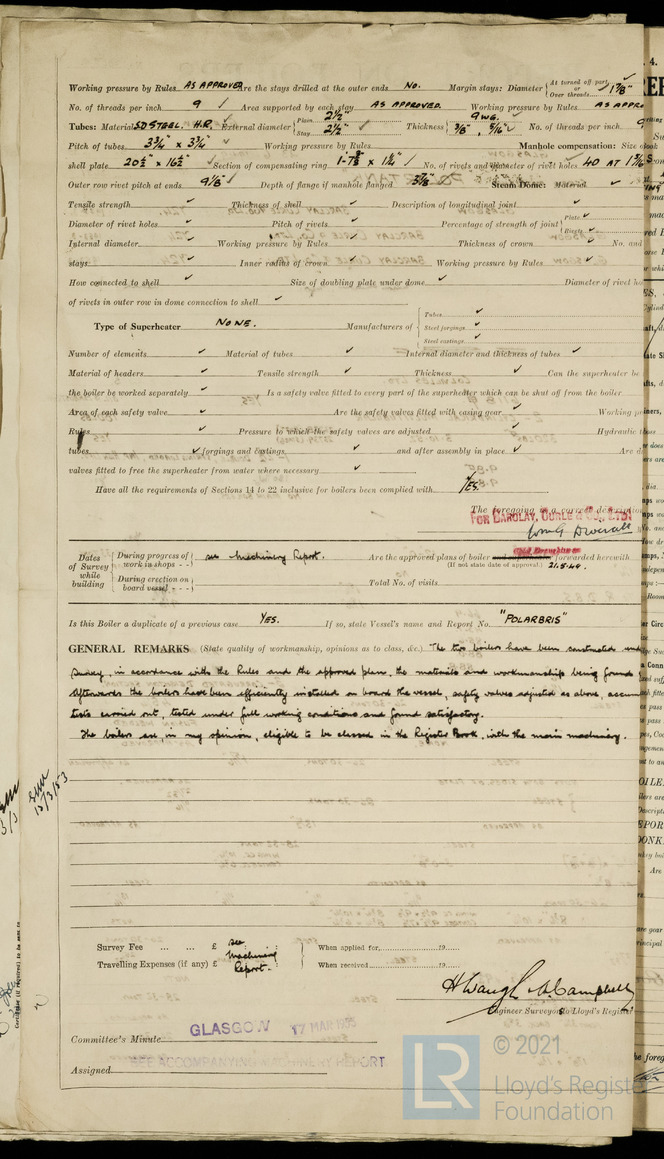 Working pressure by Rules AS APPROVED Are the stays drilled at the outer ends No. Margin stays: Diameter { At turned off part, or Over threads 1 7/8" ✓
No. of threads per inch 9 ✓ Area supported by each stay AS APPROVED. Working pressure by Rules AS APPRO
Tubes: Material S D STEEL. H.R. External diameter { Plain 2½" Stay 2½" ✓ Thickness { 9 WG. 3/8", 5/16" ✓ No. of threads per inch 9
Pitch of tubes 3¾" x 3¾" ✓ Working pressure by Rules Manhole compensation: Size o
shell plate 20½" x 16½" ✓ Section of compensating ring ✓ No. of rivets and diameter of rivet holes 40 AT
Outer row rivet pitch at ends 9 1/8" ✓ Depth of flange if manhole flanged 3 7/8" Steam Dome: Material ✓
Tensile strength ✓ Thickness of shell ✓ Description of longitudinal joint ✓
Diameter of rivet holes ✓ Pitch of rivets ✓ Percentage of strength of joint { Plate ✓ Rivets ✓
Internal diameter ✓ Working pressure by Rules ✓ Thickness of crown ✓ No. and
stays ✓ Inner radius of crown ✓ Working pressure by Rules ✓
How connected to shell ✓ Size of doubling plate under dome ✓ Diameter of rivet ho
of rivets in outer row in dome connection to shell ✓
Type of Superheater NONE. Manufacturers of { Tubes ✓ Steel forgings ✓ Steel castings ✓
Number of elements ✓ Material of tubes ✓ Internal diameter and thickness of tubes ✓
Material of headers ✓ Tensile strength ✓ Thickness ✓ Can the superheater be
the boiler be worked separately ✓ Is a safety valve fitted to every part of the superheater which can be shut off from the boiler
Area of each safety valve ✓ Are the safety valves fitted with easing gear ✓ Working p
Rules ✓ Pressure to which the safety valves are adjusted ✓ Hydraulic
tubes ✓ forgings and castings ✓ and after assembly in place ✓ Are d
valves fitted to free the superheater from water where necessary ✓
Have all the requirements of Sections 14 to 22 inclusive for boilers been complied with YES.
The foregoing is a correct description
FOR BARCLAY, CURLE & CO., LTD.
Dates of Survey while building { During progress of work in shops - - } see Machinery Report. Are the approved plans of boiler forwarded herewith
(If not state date of approval.) 21.5.49.
{ During erection on board vessel - - - } Total No. of visits
Is this Boiler a duplicate of a previous case YES. If so, state Vessel's name and Report No. "POLARBRIS"
GENERAL REMARKS (State quality of workmanship, opinions as to class, &c.) The two boilers have been constructed und
Survey, in accordance with the Rules and the approved plans, the materials and workmanship being found
Afterwards the boilers have been efficiently installed on board the vessel, safety valves adjusted as above, accum
tests carried out, tested under full working conditions and found satisfactory.
The boilers are, in my opinion, eligible to be classed in the Register Book, with the main machinery.
13/3/53
Survey Fee ... ... £ see Machinery Report. When applied for, 19
Travelling Expenses (if any) £ When received 19
Engineer Surveyor to Lloyd's Register
Committee's Minute GLASGOW 17 MAR
Assigned SEE ACCOMPANYING MACHINERY REPORT
LR
© 2021
Lloyd's Register
Foundation